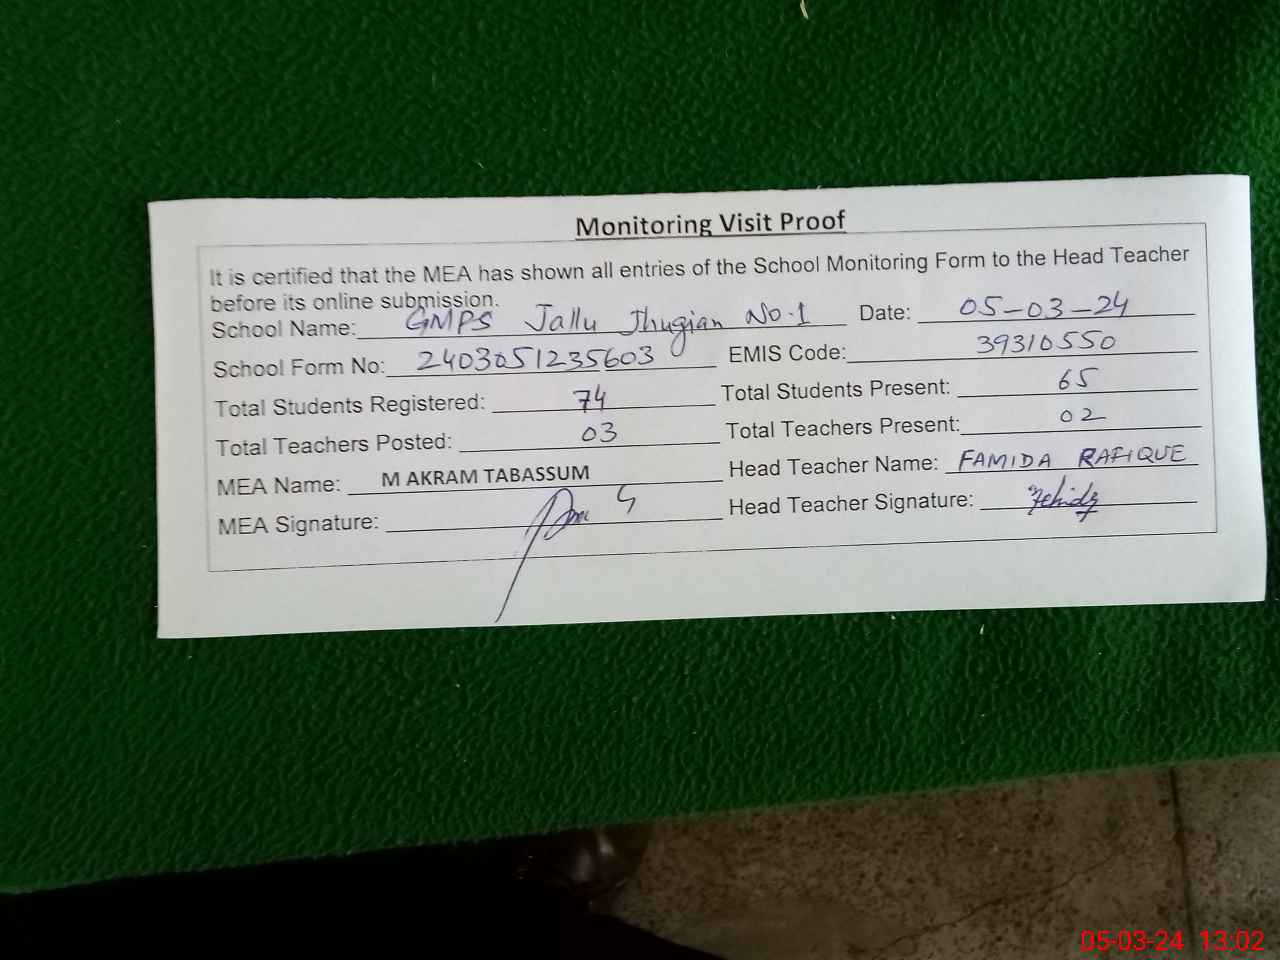 Monitoring Visit Proof
It is certified that the MEA has shown all entries of the School Monitoring Form to the Head Teacher
before its online submission.
School Name: GMPS Jallu Jhugian No.1 Date: 05-03-24
School Form No: 2403051235603 EMIS Code: 39310550
Total Students Registered: 74 Total Students Present: 65
Total Teachers Posted: 03 Total Teachers Present: 02
MEA Name: M AKRAM TABASSUM Head Teacher Name: FAMIDA RAFIQUE
MEA Signature: Head Teacher Signature:
05-03-24 13:02